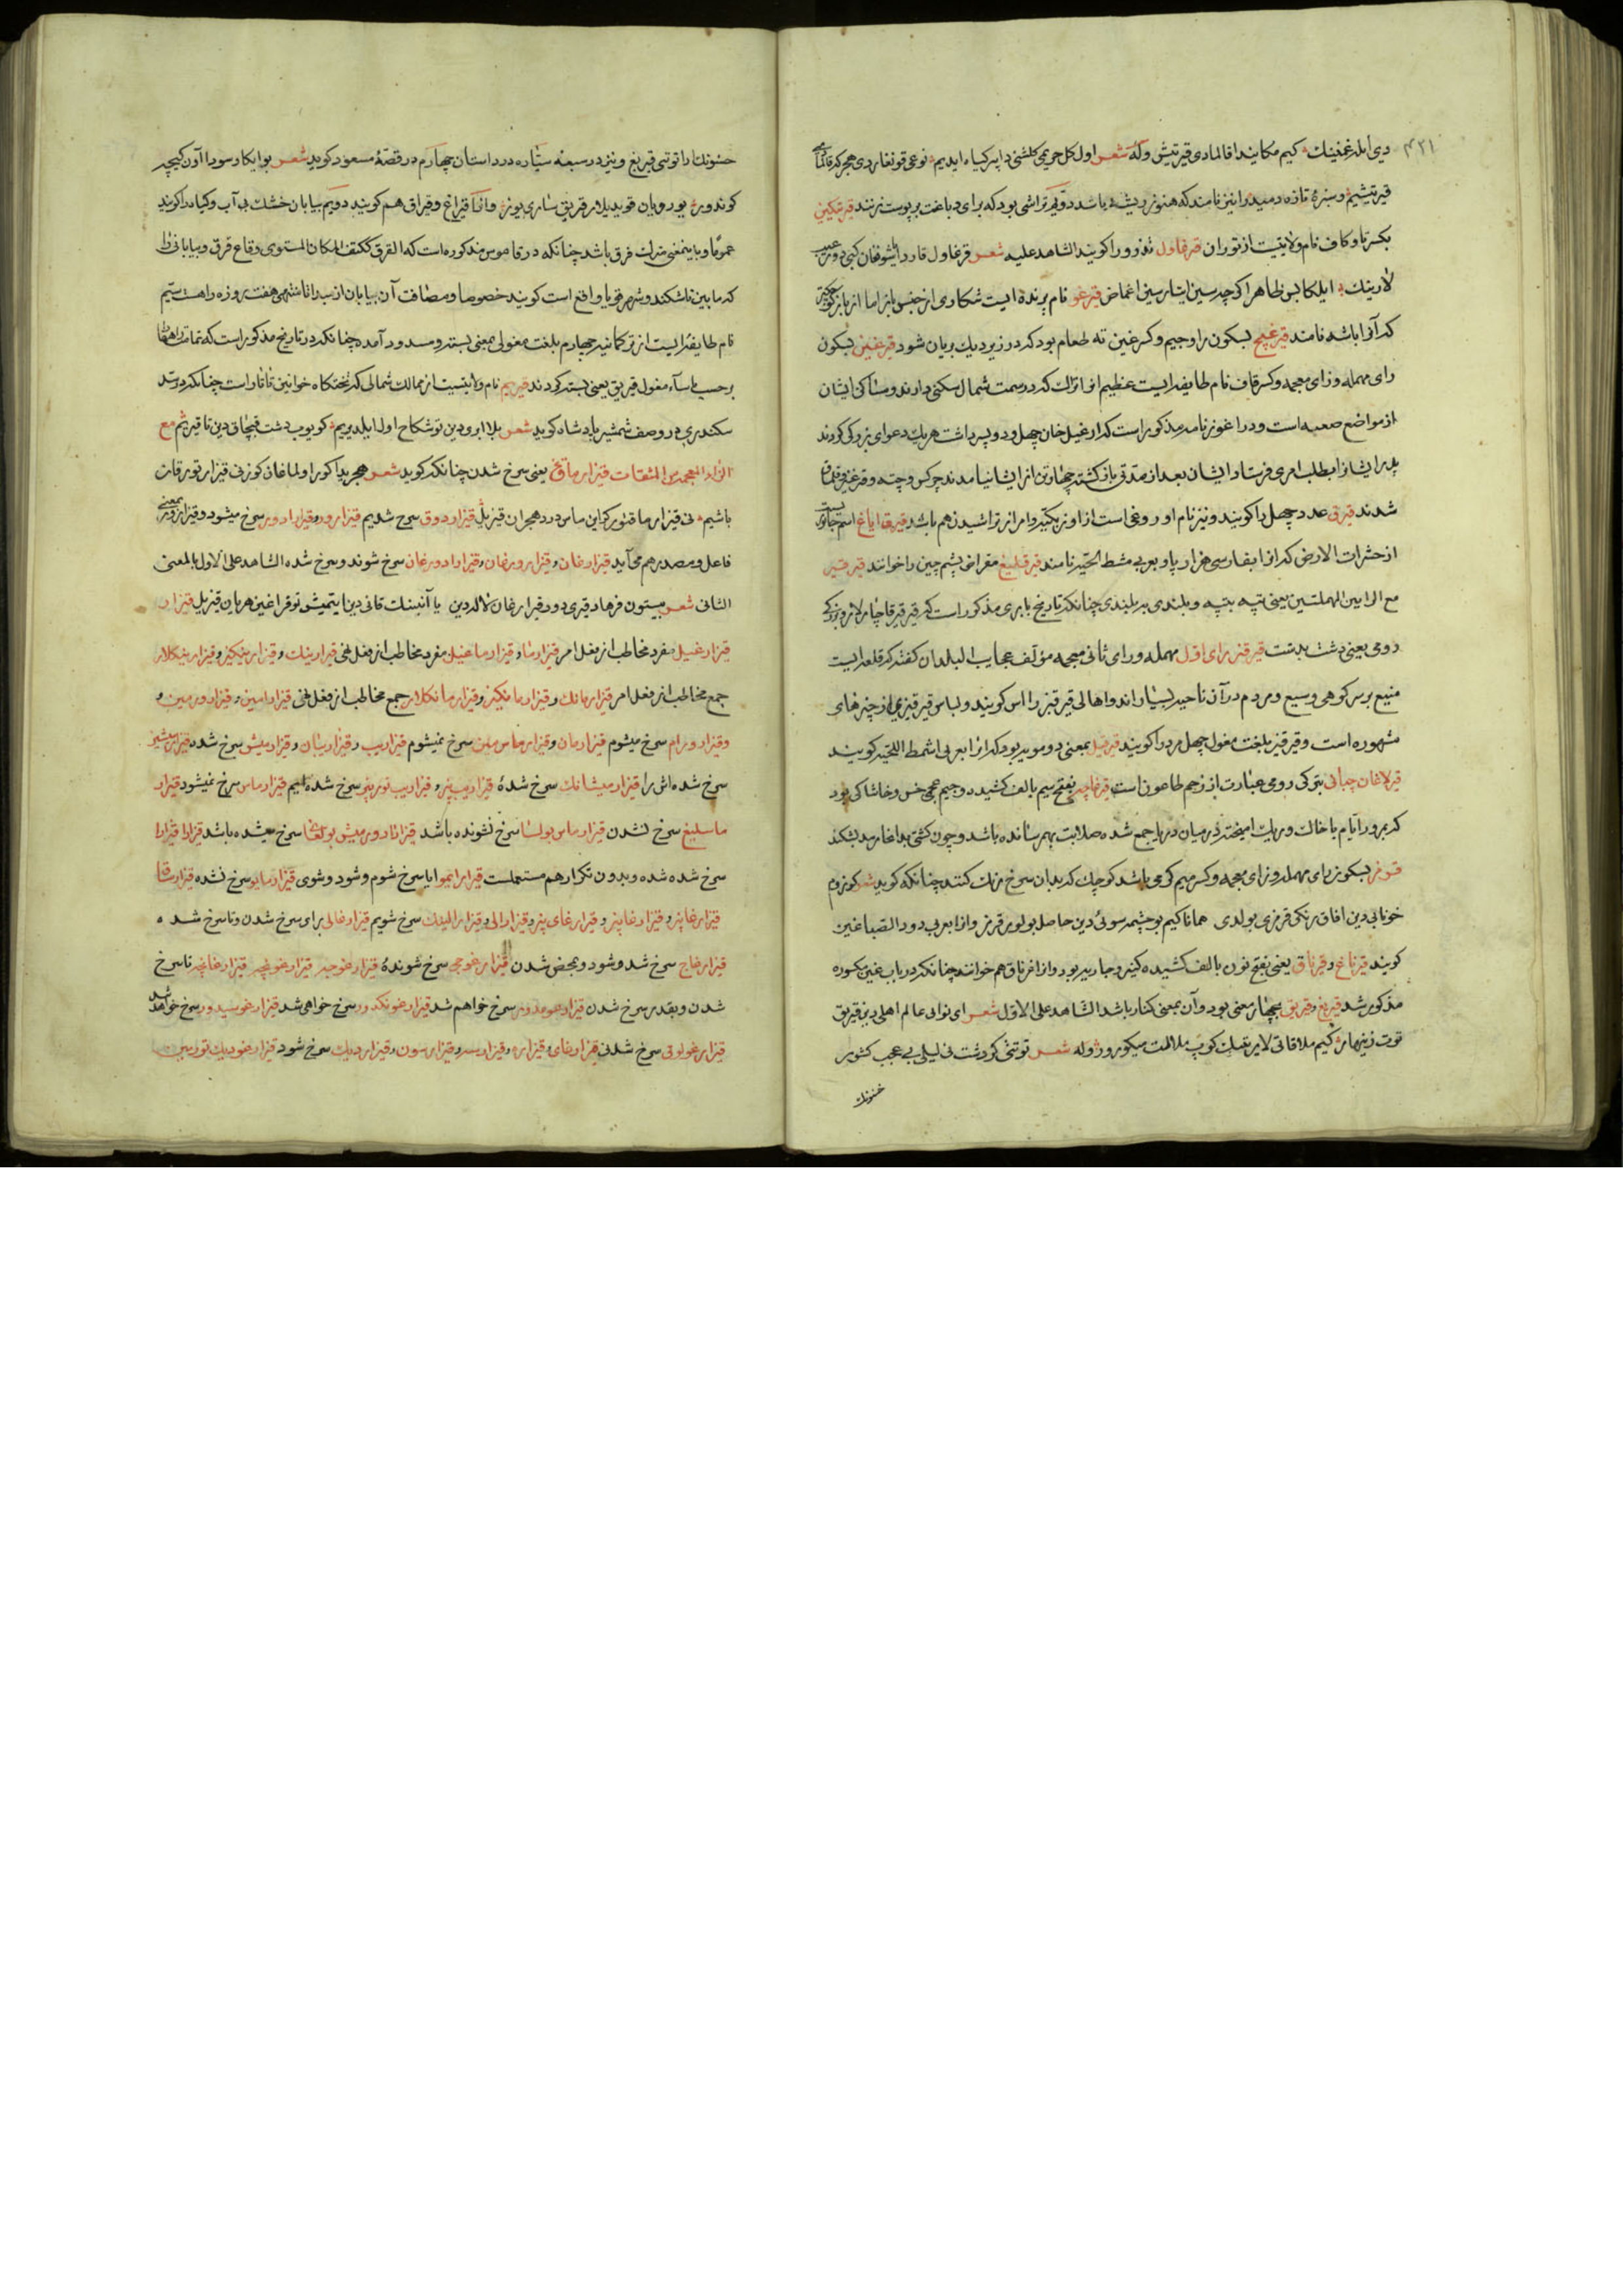 ۴۲۱
دی ایلر غمینک کیم مکایند اقالمادی قیرتیش وله شعر اول کل حریمی کلشنی دا پر کیاه ایدیم نوعی قونغار دی هجر که
قیرتیشیم و سبزهٔ تازه دمیده را نیز نامند که هنوز ریشه باشد دویم تراشی بود که برای دباغت بر پوست زنند قیرتکین
بکسر تا و کاف نام ولایتیست از توران قیرغاول تذرو را کویند الشاهد علیه شعر قرغاول قاردا
لارینک ایلکا بس ظاهرا کرچه سین ایتارسین اغماض قیرغو نام پرنده ایست شکاری از جنس باز اما از باز کوچکتر
که آنرا باشه نامند قیرغیچ بسکون را و جیم و کسر غین ته طعام بود که در زیر دیک بریان شود قیرغیز بسکون
رای مهمله و زای معجمه و کسر قاف نام طایفه ایست عظیم از اتراک که در سمت شمال سکنی دارند و مساکن ایشان
از مواضع صعبه است و در اغوزنامه مذکور است که ارغیل خان چهل و دو پسر داشت هریک دعوای بزرکی کردند
پدر ایشانرا بطلب امری فرستاد ایشان بعد از مدتی باز کشته چهار تن از ایشان نیامدند چرکس و چته و قرغیز و قلماق
شدند قیرق عدد چهل را کویند و نیز نام اوروغی است از اوزبکیه و امر از تراشیدن هم باشد قیرق ایاغ اسم جانوریست
از حشرات الارض که انرا بفارسی هزار پا و بعربی مشط الحیه نامند قیرقلیغ مقراض پشم چین را خوانند قیر قیر
مع الرایین المهملتین یعنی تپه بتپه و بلندی ببر بلندی چنانکه در تاریخ بابری مذکور است که قیر قیر قاچار لار و بترکی
رومی یعنی دشت بدشت قیر قیز برای اول مهمله و رای ثانی معجمه مؤلف عجایب البلدان کفته که قلعه ایست
منیع بر سر کوهی وسیع و مردم در آن ناحیه بسیاراند و اهالی قیرقیز را اس کویند و لباس قیرقیز یی از چیزهای
مشهوره است و قیرقیز بلغت مغول چهل مرد را کویند قیرقیل بمعنی دو مویه بود که انرا بعربی اشمط اللحیه کویند
قیرلاغان چبانی بترکی رومی عبارت از زخم طاعون است قیرماچه بفتح میم بالف کشیده و جیم عجمی خس و خاشاکی بود
که بمرور ایام با خاک و ریک امیخته در میان دریا جمع شده صلابت بهم رسانده باشد و چون کشتی بدانجا رسد بشکند
قیرمز بسکون رای مهمله و زای معجمه و کسر میم کرمی باشد کوچک که بدان سرخ رنک کنند چنانکه کوید شعر کونروم
خونابی دین افاق رنکی قرمزی بولدی همانا کیم بو چشمه سوئی دین حاصل بولور قرمز و انرا بعربی دود الصباغین
کویند قیرناغ و قیرناق یعنی بفتح نون بالف کشیده کنیز و جاریه بود و انرا قرناق هم خوانند چنانکه در باب غین مکسوره
مذکور شد قیریغ و قیریق بچهار معنی بود و آن بمعنی کنار باشد الشاهد علی الاول شعر ای نوایی عالم اهلی دین قیریق
توت زینهار کیم ملاقاتی لاریقلک کوپ ملالت میکورور و له شعر توتتی کر دشت نی لیلی بی عجب کشور
حسنونک
حسنونک دا توتتی قیریغ و نیز در سبعه سیاره در داستان چهارم در قصهٔ مسعود کوید شعر بو ایکار سودا آون کیچه
کوندوز یورودیان قویدیلار قریق ساری یوز و انرا قیراغ و قیراق هم کویند دویم بیابان خشک بی آب و کیاه را کویند
عموما و باینمعنی مترک فرق باشد چنانکه در قاموس مذکوره است که القرق ککتف المکان المستوی و قاع قرق و بیابانی را
که مابین تاشکند و شهر قویا واقع است کویند خصوصا و مضافت آن بیابان از سه انا منتهی هفت روزه راهست سیم
نام طایفه ایست از ترکمانیه چهارم بلغت مغولی بمعنی بسته و مسدود آمده چنانکه در تاریخ مذکور است که
بر حسب یاساء مغول قیریق یعنی بسته کردند قیریم نام ولایتیست از ممالک شمالی که تختکاه خوانین تاتار است چنانکه در سد
سکندری در وصف شمشیر پادشاه کوید شعر بلا ابرودین توشکاح اول ایلدیریم کویوب دشت قبچاق دین تا قیریم مع
الزاء المعجمه من المشتقات قیزارماق یعنی سرخ شدن چنانکه کوید شعر هجریدا کور اولماغان کوزنی قیزار تور قان
باشیم نی قیزارماقتور کوراین ماس درد هجران قیزیل قیزاردوق سرخ شدیم قیزارور و قیزارادور سرخ میشود و قیزارور بمعنی
فاعل و مصدر هم می آید قیزارغان و قیزارورغان و قیزارادورغان سرخ شوند و سرخ شده الشاهد علی الاول بالمعنی
الثانی شعر بیستون فرهاد قبری دور قیزارغان لاله دین یا آنینک قانی دین ایتمیش توفراغین هریان قیزیل قیزار
قیزارغیل مفرد مخاطب از فعل امر قیزارما و قیزارماغیل مفرد مخاطب از فعل نهی قیزارینک و قیزارینکیز و قیزارینکلار
جمع مخاطب از فعل امر قیزارمانک و قیزارمانکیز و قیزارمانکلار جمع مخاطب از فعل نهی قیزارامین و قیزارورمین و
و قیزارورام سرخ میشوم قیزارمان و قیزارماس مین سرخ نمیشوم قیزاریب و قیزاریبان و قیزارمیش سرخ شده
سرخ شده اش را قیزارمیشانک سرخ شدهٔ قیزاریبیز و قیزاریب توربیز سرخ شده ایم قیزارماس سرخ نمیشود قیزار
ماسلیغ سرخ نشدن قیزارماس بولسا سرخ نشونده باشد سرخ میشده باشد قیزارا قیزارا
سرخ شده شده و بدون تکرار هم مستعملست قیزارایمو ایا سرخ شوم و شود و شوی قیزارمایو سرخ نشده قیزارسا
قیزارغابیز و قیزارغابیز و قیزارغای بیز و قیزارالی و قیزارالینک سرخ شویم قیزارغالی برای سرخ شدن و تا سرخ شده
قیزارغاج سرخ شد و شود و بمحض شدن قیزارغوجی سرخ شوندهٔ قیزارغوجه قیزارغونچه قیزارغانچه تا سرخ
شدن و بقدر سرخ شدن سرخ خواهم شد قیزارغونکدور سرخ خواهی شد قیزارغوسیدور سرخ خواهد شد
قیزارغولوق سرخ شدنی قیزارغای و قیزاره و قیزارسه و قیزارسون و قیزاردیک سرخ شود قیزارغودیک تورمین